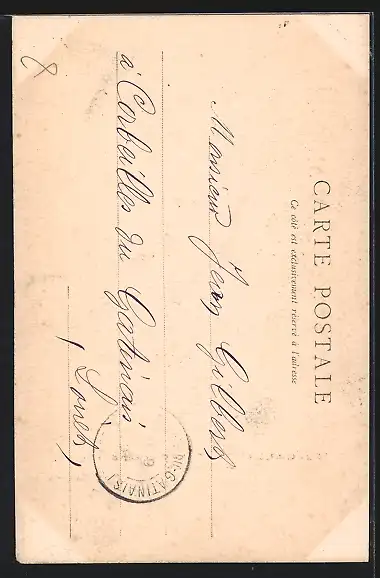 CARTE POSTALE
Ce côté est exclusivement réservé à l'adresse
Monsieur Jean Gilbert
à Corbeilles du Gatinais
(Loiret)
DU-GATINAIS
8